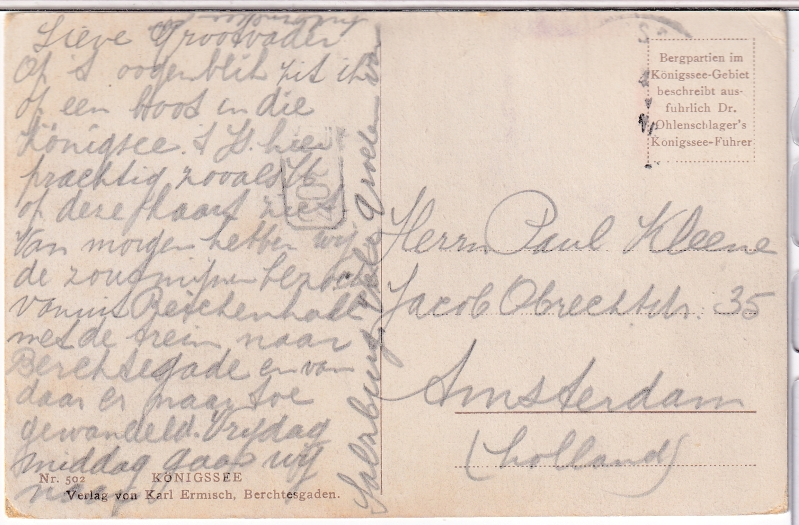 Lieve Grootvader
Op 't oogenblik zit ik
op een boot in die
Königsee. 't Is hier
prachtig zooals U
op deze kaart ziet
Van morgen hebben wij
de zoutmijnen bezocht
vanuit Reichenhall
met de trein naar
Berchtsegade en van
daar er naar toe
gewandeld. Vrijdag
middag gaan wij
naar
Salzburg. Vele Groeten van
Bergpartien im
Königssee-Gebiet
beschreibt aus-
fuhrlich Dr.
Ohlenschlager's
Konigssee-Fuhrer
Herrn Paul Kleene
Jacob Obrechtstr. 35
Amsterdam
(Holland)
Nr. 502 KÖNIGSSEE
Verlag von Karl Ermisch, Berchtesgaden.